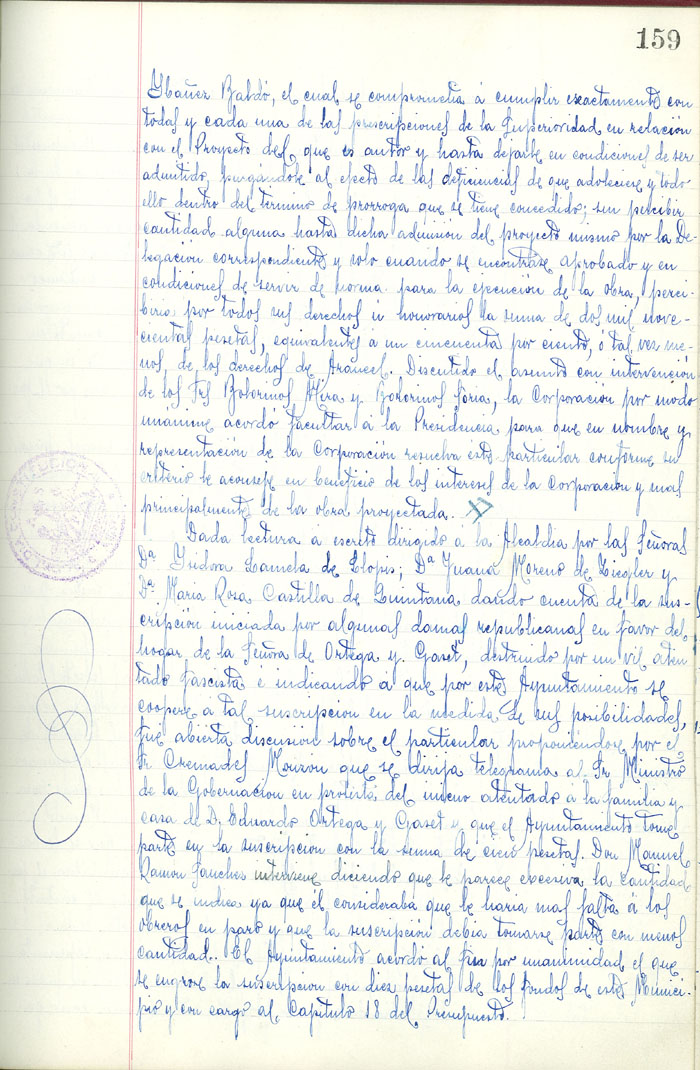 159
Ybañez Baldó, el cual se comprometia á cumplir exactamente con
todas y cada una de las prescripciones de la Superioridad en relación
con el Proyecto del que es autor y hasta dejarle en condiciones de ser
admitido, purgándose al efecto de las deficiencias de que adoleciere y todo
ello dentro del termino de prorroga que se tiene concedido; sin percibir
cantidad alguna hasta dicha admision del proyecto mismo por la De-
legacion correspondiente y solo cuando se encontrase aprobado y en
condiciones de servir de norma para la ejecución de la obra, perci-
biria por todos sus derechos u honorarios la suma de dos mil nove-
cientas pesetas, equivalentes á un cincuenta por ciento, ó tal vez me-
nos, de los derechos de Arancel. Discutido el asunto con intervención
de los Srs Mira y Soria, la Corporación por modo
unánime acordó facultar á la Presidencia para que en nombre y
representación de la Corporación resuelva este particular conforme su
criterio le aconseje en beneficio de los intereses de la Corporacion y mas
principalmente de la obra proyectada.
Dada lectura á escrito dirigido á la Alcaldia por las Señoras
Dª Ysidora Lameta de Llopis; Dª Juana Moreno de Ziegler y
Dª Maria Rosa Castilla de Quintana dando cuenta de la sus-
cripción iniciada por algunas damas republicanas en favor del
hogar de la Señora de Ortega y Gaset, destruido por un vil aten
tado fascista e indicando á que por este Ayuntamiento se
coopere á tal suscripcion en la medida de sus posibilidades,
fue abierta discusión sobre el particular proponiendose por el
Sr Cremades Monzon que se dirija telegrama al Sr Ministro
de la Gobernacion en protesta del inicuo atentado á la familia y
casa de D. Eduardo Ortega y Gaset y que el Ayuntamiento tome
parte en la suscripcion con la suma de cien pesetas. Don Manuel
Ramon Sanchez interviene diciendo que le parece excesiva la cantidad
que se indica ya que él consideraba que le haria mas falta á los
obreros en paro y que la suscripción debia tomarse parte con menos
cantidad. El Ayuntamiento acordó al fin por unanimidad el que
se engrose la suscripcion con diez pesetas de los fondos de este Munici-
pio y con cargo al Capitulo 18 del Presupuesto.